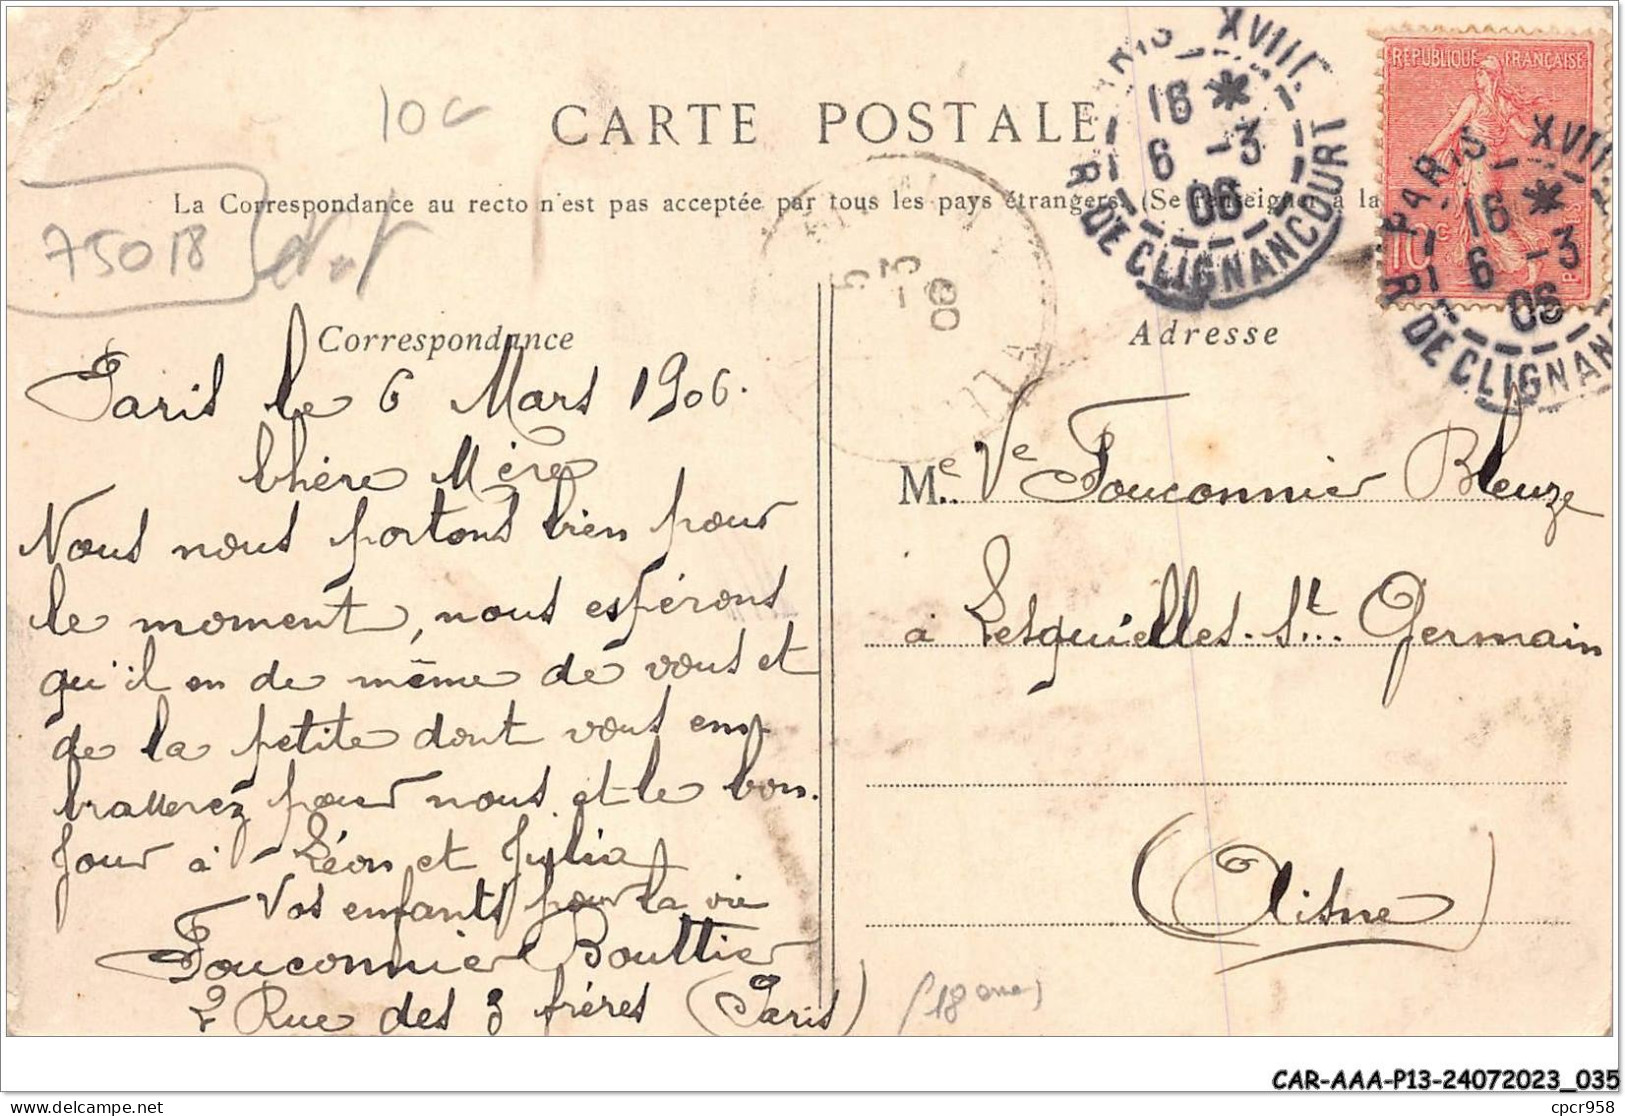 10c
CARTE POSTALE
La Correspondance au recto n'est pas acceptée par tous les pays étrangers. (Se renseigner à la
75018
Correspondance
Paris le 6 Mars 1906.
Chère Mère
Nous nous portons bien pour
le moment, nous espérons
qu'il en de même de vous et
de la petite dont vous em-
brasserez pour nous et le bon-
jour à Léon et Julia
Vos enfants pour la vie
Fouconnier Bouttier
2 Rue des 3 frères (Paris)
Adresse
Me Ve Fouconnier Bleuze
à Lesquielles-St. Germain
(Aisne)
(18 eme)
REPUBLIQUE FRANÇAISE
10c
POSTES
PARIS XVIII
16 *
6 -3
06
R. DE CLIGNANCOURT
PARIS XVIII
16 *
6 -3
06
R. DE CLIGNANC
06
CAR-AAA-P13-24072023_035
cpcr958